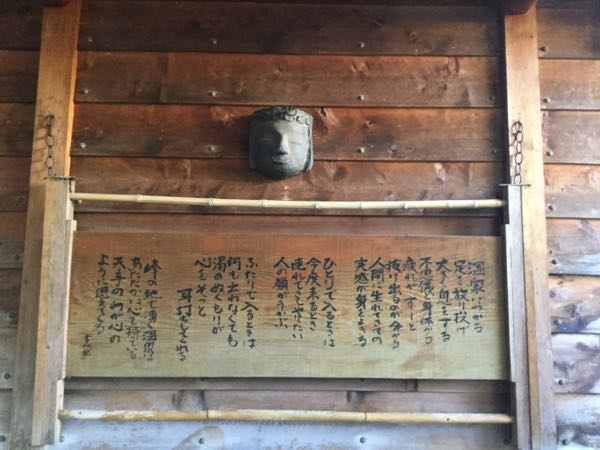 温泉につかる
足を放り投げ
大きく息をする
不思議と身体から
疲れがすーと
抜け出るのが分かる
人間に生れてきての
実感が身をよぎる
ひとりで入るときは
今度来るとき
連れてきてやりたい
人の顔がうかぶ
ふたりで入るときは
何も云わなくても
湯のぬくもりが
心をそっと
耳打ちしてくれる
峰の地で湧く温泉は
あたたかい心を持っている
天手のわが心の
ように思えてくる